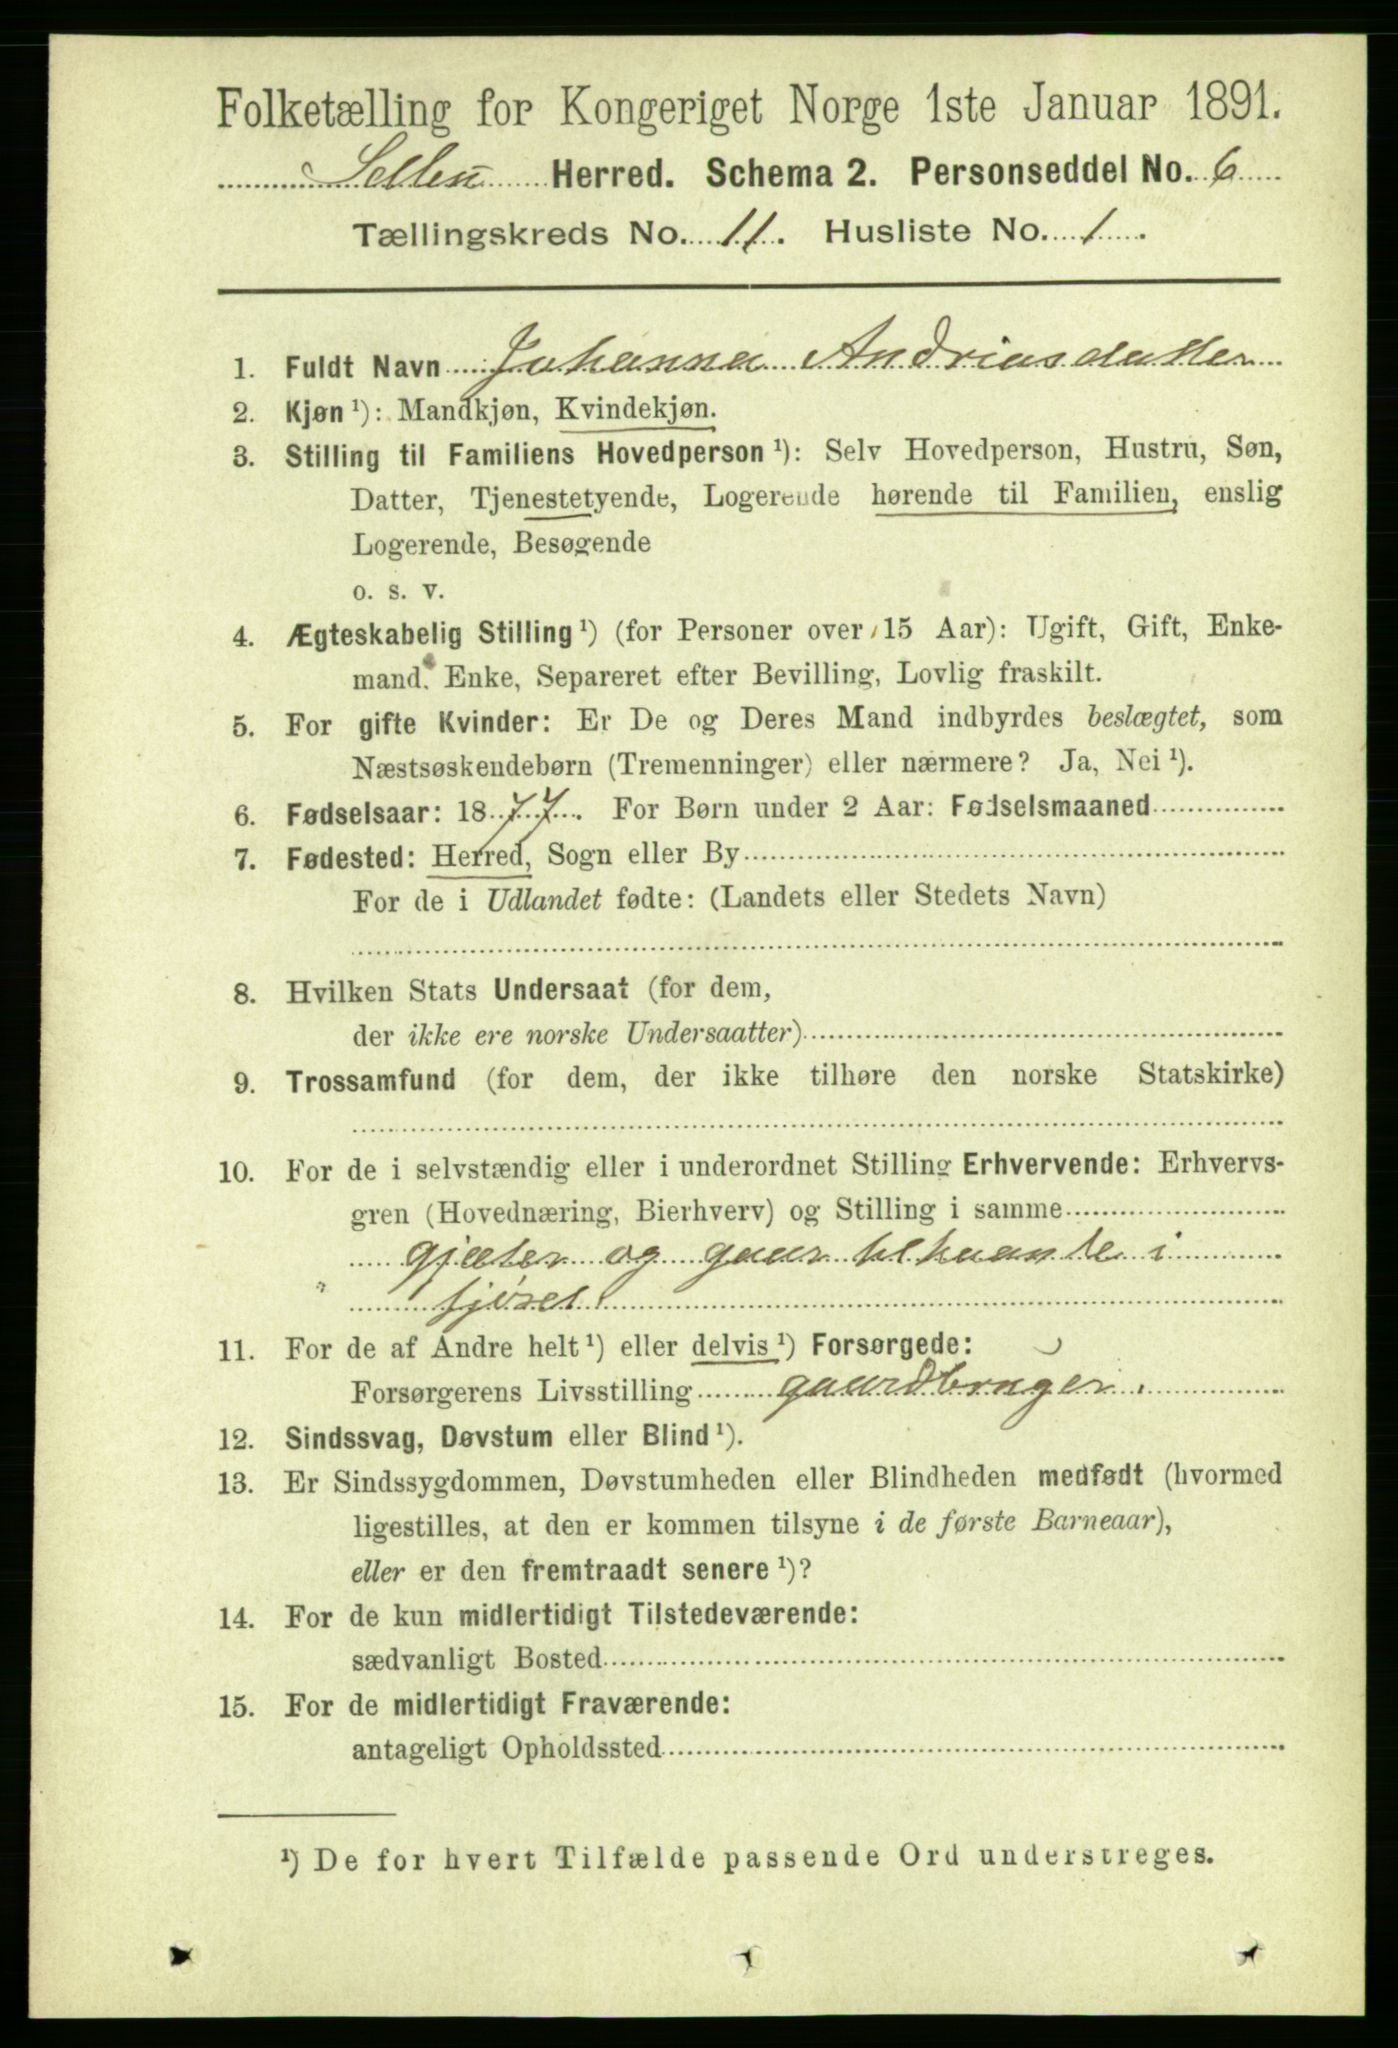 Folketælling for Kongeriget Norge 1ste Januar 1891.
Selbu Herred. Schema 2. Personseddel No. 6
Tællingskreds No. 11. Husliste No. 1.
1. Fuldt Navn Johanna Andriasdatter
2. Kjøn ¹): Mandkjøn, Kvindekjøn.
3. Stilling til Familiens Hovedperson ¹): Selv Hovedperson, Hustru, Søn,
Datter, Tjenestetyende, Logerende hørende til Familien, enslig
Logerende, Besøgende
o. s. v.
4. Ægteskabelig Stilling ¹) (for Personer over 15 Aar): Ugift, Gift, Enke-
mand, Enke, Separeret efter Bevilling, Lovlig fraskilt.
5. For gifte Kvinder: Er De og Deres Mand indbyrdes beslægtet, som
Næstsøskendebørn (Tremenninger) eller nærmere? Ja, Nei ¹).
6. Fødselsaar: 1877. For Børn under 2 Aar: Fødselsmaaned
7. Fødested: Herred, Sogn eller By
For de i Udlandet fødte: (Landets eller Stedets Navn)
8. Hvilken Stats Undersaat (for dem,
der ikke ere norske Undersaatter)
9. Trossamfund (for dem, der ikke tilhøre den norske Statskirke)
10. For de i selvstændig eller i underordnet Stilling Erhvervende: Erhvervs-
gren (Hovednæring, Bierhverv) og Stilling i samme
gjæter og gaar tilhaande i
fjöset
11. For de af Andre helt ¹) eller delvis ¹) Forsørgede:
Forsørgerens Livsstilling gaardbruger.
12. Sindssvag, Døvstum eller Blind ¹).
13. Er Sindssygdommen, Døvstumheden eller Blindheden medfødt (hvormed
ligestilles, at den er kommen tilsyne i de første Barneaar),
eller er den fremtraadt senere ¹)?
14. For de kun midlertidigt Tilstedeværende:
sædvanligt Bosted
15. For de midlertidigt Fraværende:
antageligt Opholdssted
¹) De for hvert Tilfælde passende Ord understreges.